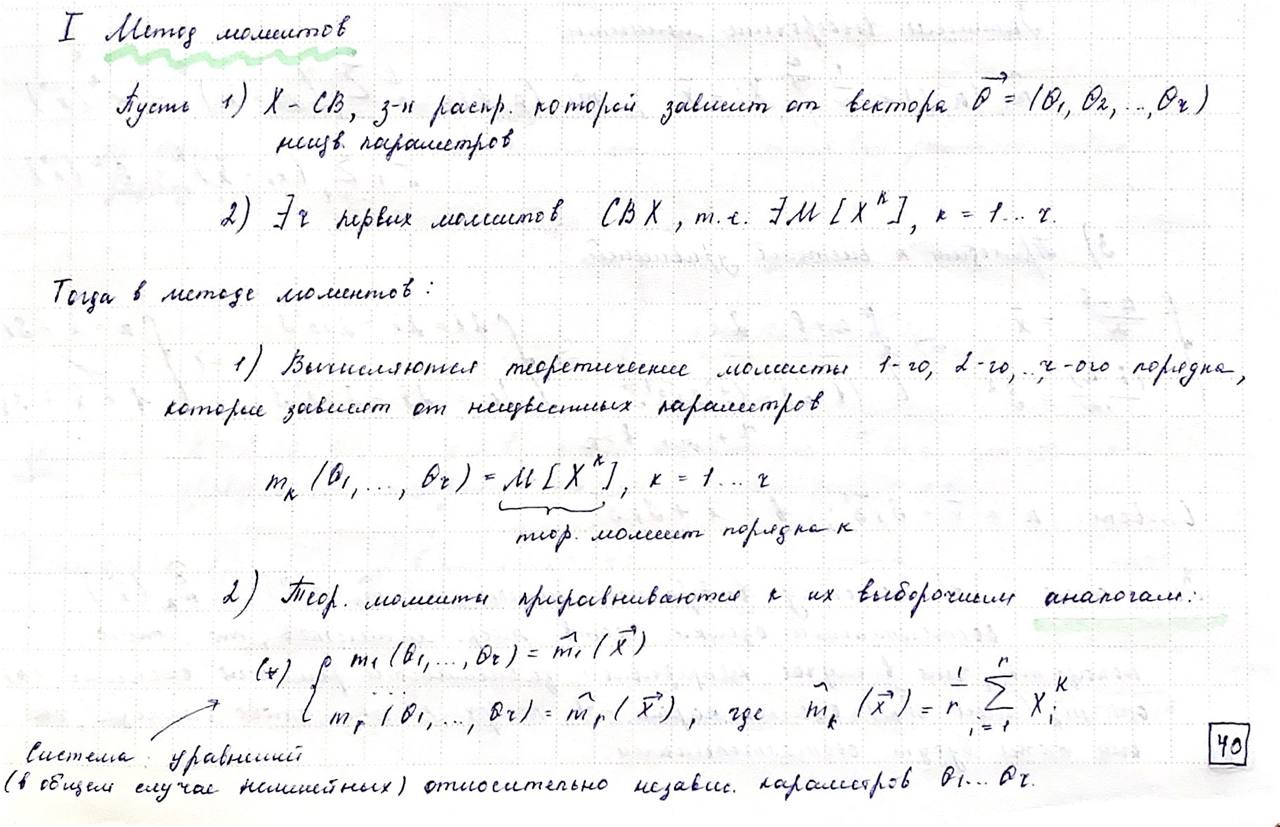 I Метод моментов
Пусть 1) X – СВ, з-н распр. которой зависит от вектора θ⃗ = (θ1, θ2, ..., θr)
неизв. параметров
2) ∃ r первых моментов СВ X, т.е. ∃ M[X^k], k = 1...r.
Тогда в методе моментов:
1) Вычисляются теоретические моменты 1-го, 2-го, .., r-ого порядка,
которые зависят от неизвестных параметров
m_k (θ1, ..., θr) = M[X^k], k = 1...r
теор. момент порядка k
2) Теор. моменты приравниваются к их выборочным аналогам:
(*) { m1 (θ1, ..., θr) = m̂1 (X⃗)
...
mr (θ1, ..., θr) = m̂r (X⃗), где m̂_k (x⃗) = 1/n ∑_{i=1}^{n} X_i^k
Система уравнений
(в общем случае нелинейных) относительно независ. параметров θ1...θr.
40